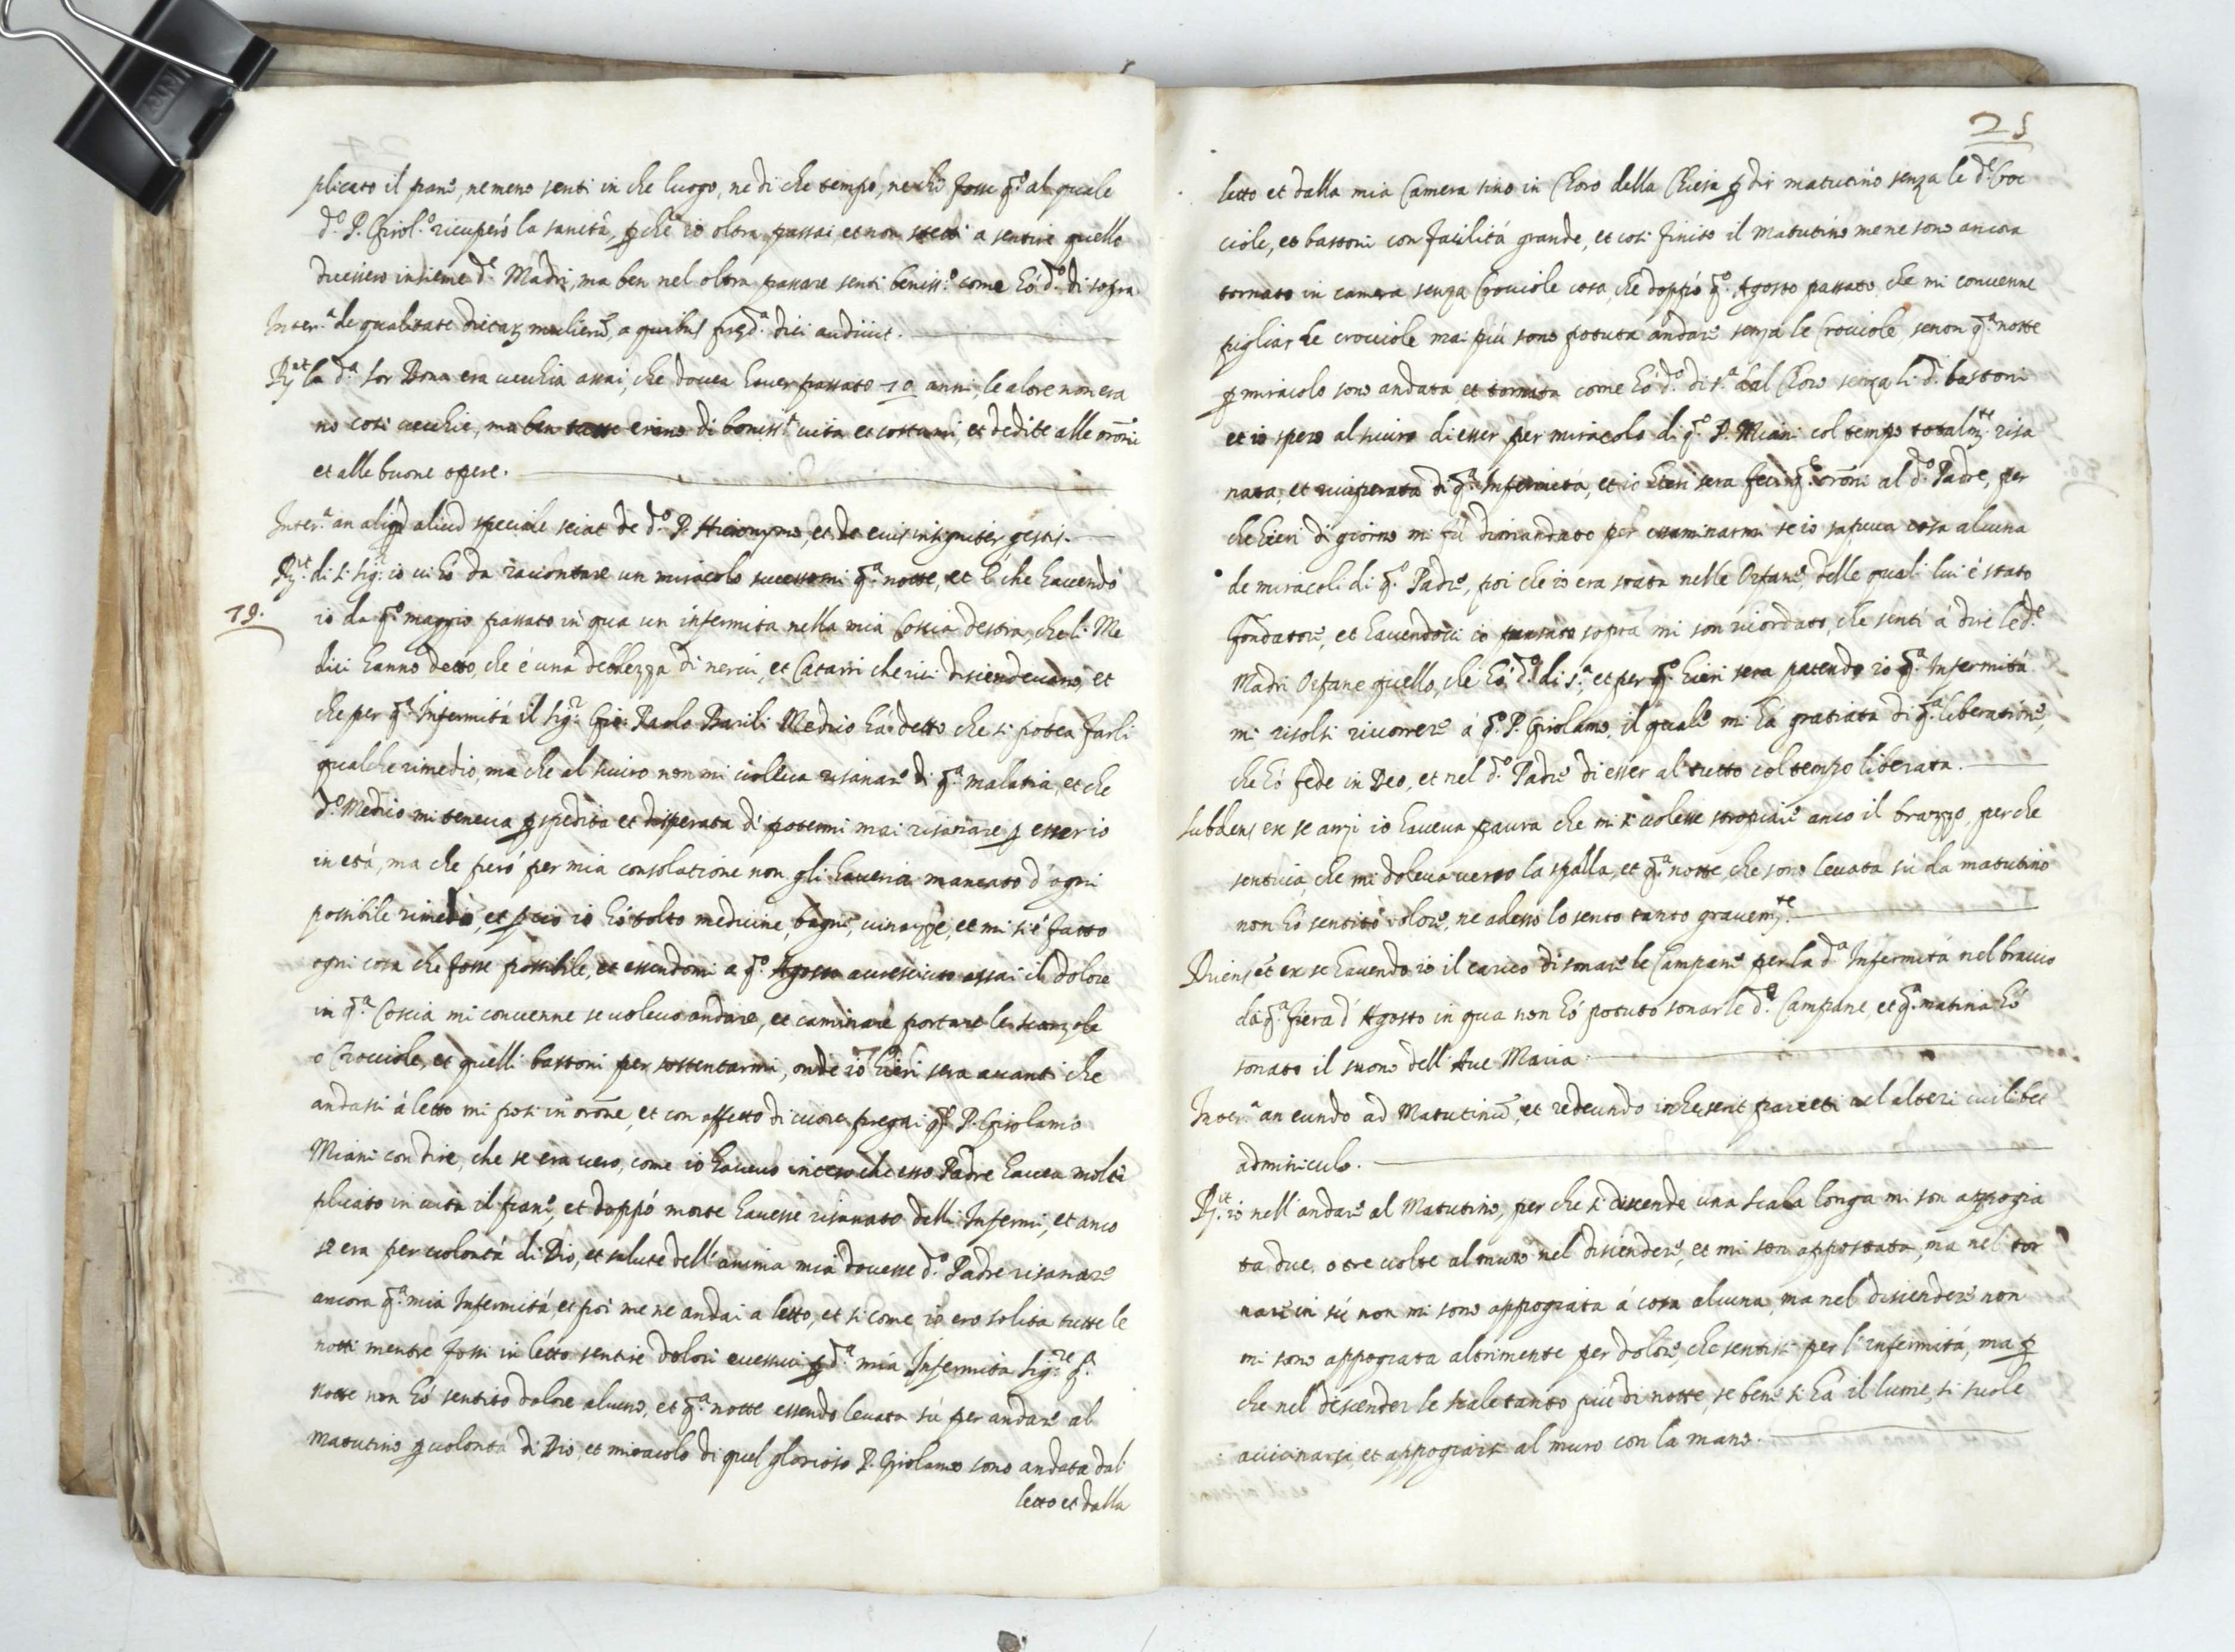 plicato il pane, nemeno senti in che luogo, ne di che tempo, ne chi fosse q.o al quale
d.o P. Girol.o ricuperò la sanità, p che io oltra passai, et non stetti a sentire quello
dicessero insieme d.e Madri, ma ben nel oltra passare senti beniss.o come hó d.o di sopra
Inter.a de qualitate dictar mulierū, a quibus pred.a dici audivit.
R.et la d.a sor Dona era vecchia assai, che dovea haver passato 70 anni, le altre non era
no così vecchie, ma ben tutte erano di boniss.a vita et costumi, et dedite alle orōni
et alle buone opere.
Inter.a an aliqd aliud speciale sciat de d.o P. Hieronymo, et de eius insigniter gestis.
R.et di si sig.r io vi hó da racontare un miracolo successomi q.a notte, et è che havendo
19.
io da q.o maggio passato in qua un infermità nella mia Coscia destra, che li Me
dici hanno detto, che è una debbezza di nervi, et Catarri che ivi discendevano, et
che per q.a Infermità il Sig.r Gio: Paolo Barili Medico ha detto che si potea farli
qualche rimedio, ma che al sicuro non mi voleva risanare di q.a malatia, et che
d.o Medico mi teneva p spedita et disperata di potermi mai risanare p esser io
in età, ma che però per mia consolatione non gli haveria mancato d'ogni
possibile rimedio, et pciò io hó tolto medicine, bagni, vinazze, et mi si è fatto
ogni cosa che fosse possibile, et essendomi a q.o Agosto accresciuto assai il dolore
in q.a Coscia mi convenne se volevo andare, et caminare portare le scanzole
o Crocciole, et quelli bastoni per sostentarmi, onde io hieri sera avanti che
andassi á letto mi posi in orōne, et con affetto di cuore pregai q.o P. Girolamo
Miani con dire, che se era vero, come io havevo inteso che esso Padre havea molti
plicato in vita il pane, et doppó morte havesse risanato delli Infermi, et anco
se era per volontá di Dio, et salute dell'anima mia dovesse d.o Padre risanare
ancora q.a mia Infermitá, et poi me ne andai a letto, et si come io ero solita tutte le
notti mentre fossi in letto sentire dolori eccessivi p d.a mia Infermità sig.re q.a
notte non hó sentito dolore alcuno, et q.a notte essendo levata sú per andare al
Matutino p volontá di Dio, et miracolo di quel glorioso P. Girolamo sono andata dal
letto et dalla
25
letto et dalla mia Camera sino in Choro della Chiesa p dir matutino senza le d.e Croc
ciole, et bastoni con facilitá grande, et così finito il Matutino me ne sono ancora
tornata in camera senza Crocciole cosa, che doppó q.o Agosto passato che mi convenne
pigliar le crocciole mai più sono potuta andare senza le Crocciole, se non q.a notte
p miracolo sono andata, et tornata come hó d.o di s.a dal Choro senza li d. bastoni
et io spero al sicuro di esser per miracolo di q.o P. Miani col tempo totalm.te risa
nata, et ricuperata di q.a Infermitá, et io hieri sera feci q.e orōni al d.o Padre, per
che hieri di giorno mi fú dimandato per essaminarmi se io sapeva cosa alcuna
de miracoli di q.o Padre, poi che io era stata nelle Orfane, delle quali lui è stato
fondatore, et havendoci io pensato sopra mi son ricordato, che senti á dire le d.e
Madri Orfane quello, che hó d.o di s.a, et per q.o hieri sera patendo io q.a Infermitá
mi risolsi ricorrere á q.o P. Girolamo, il quale mi há gratiata di q.a liberatione,
che hó fede in Deo, et nel d.o Padre di esser al tutto col tempo liberata.
subdens ex se anzi io haveva paura che mi si volesse stropiare anco il brazzo, perche
sentiva, che mi doleva verso la spalla, et q.a notte, che sono levata sú da matutino
non hó sentito dolore, ne adesso lo sento tanto gravem.te
Dicens et ex se havendo io il carico di sonare le Campane per la d.a Infermitá nel braccio
da q.a fiera d'Agosto in qua non hó potuto sonar le d.e Campane, et q.a matina hó
sonato il suono dell'Ave Maria
Inter.a an eundo ad Matutinū, et redeundo inheserit parieti vel alteri cuilibet
adminiculo.
R.it io nell'andare al Matutino, per che si discende una scala longa mi son appogia
ta due, o tre volte al muro nel discendere, et mi son appostata, ma nel tor
nare in sú non mi sono appogiata á cosa alcuna, ma nel discendere non
mi sono appogiata altrimente per dolore, che sentissi per l'infermitá, ma p
che nel descender le scale tanto piú di notte, se bene si há il lume, si suole
avicinarsi, et appogiarsi al muro con la mano.